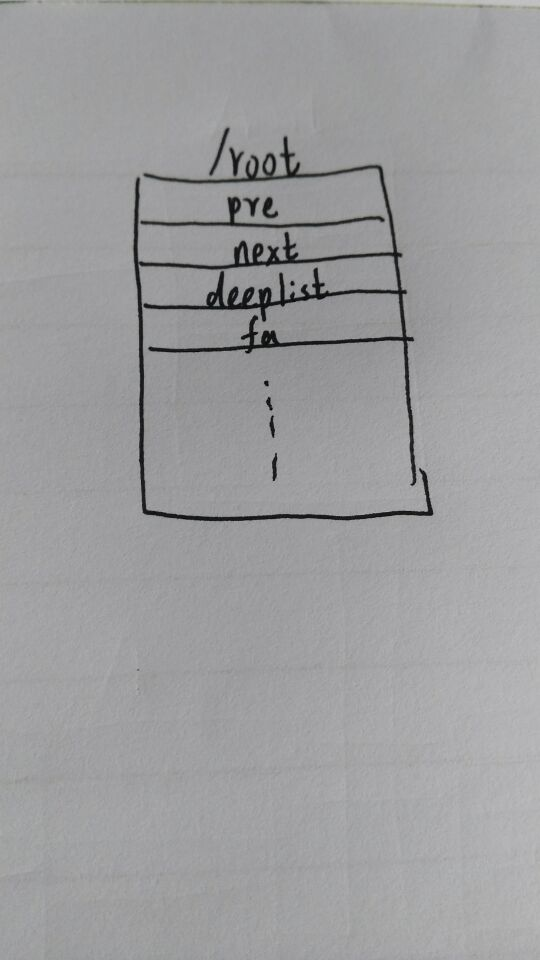 /root
pre
next
deeplist
fa